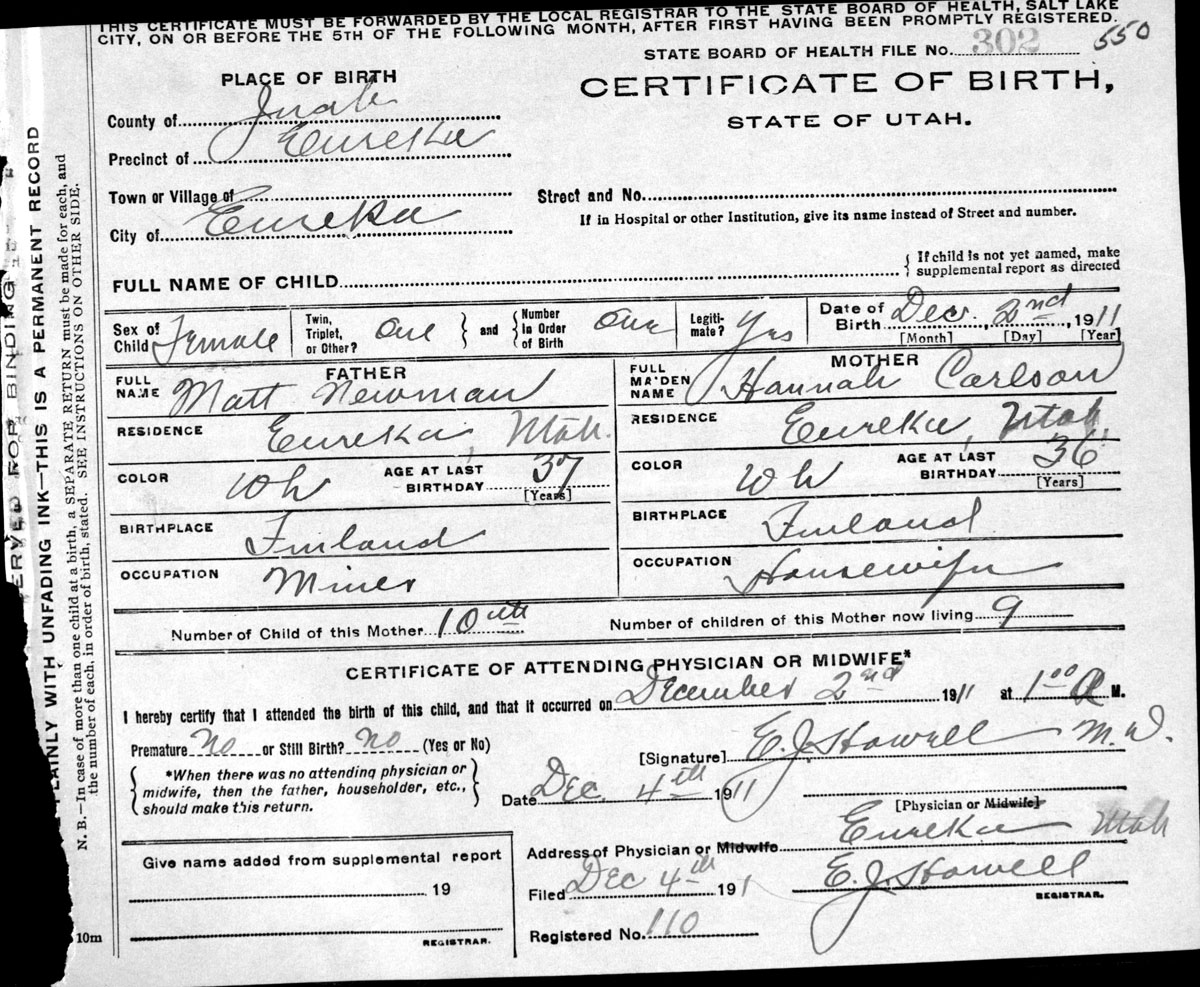 THIS CERTIFICATE MUST BE FORWARDED BY THE LOCAL REGISTRAR TO THE STATE BOARD OF HEALTH, SALT LAKE
CITY, ON OR BEFORE THE 5TH OF THE FOLLOWING MONTH, AFTER FIRST HAVING BEEN PROMPTLY REGISTERED.
STATE BOARD OF HEALTH FILE No. 302 550
PLACE OF BIRTH
CERTIFICATE OF BIRTH,
STATE OF UTAH.
County of Juab
Precinct of Eureka
Town or Village of
Street and No.
If in Hospital or other Institution, give its name instead of Street and number.
City of Eureka
FULL NAME OF CHILD
{ If child is not yet named, make
supplemental report as directed
Sex of Child Female
Twin, Triplet, or Other? One } and { Number In Order of Birth One
Legiti-mate? Yes
Date of Birth Dec. 2nd, 1911
[Month] [Day] [Year]
FATHER
FULL NAME Matt Newman
RESIDENCE Eureka, Utah.
COLOR Wh AGE AT LAST BIRTHDAY 37 [Years]
BIRTHPLACE Finland
OCCUPATION Miner
MOTHER
FULL MAIDEN NAME Hannah Carlson
RESIDENCE Eureka, Utah
COLOR Wh AGE AT LAST BIRTHDAY 36 [Years]
BIRTHPLACE Finland
OCCUPATION Housewife
Number of Child of this Mother 10th Number of children of this Mother now living 9
CERTIFICATE OF ATTENDING PHYSICIAN OR MIDWIFE*
I hereby certify that I attended the birth of this child, and that it occurred on December 2nd 1911 at 1 00 A M.
Premature No or Still Birth? No (Yes or No)
[Signature] E. J. Howell M.D.
{ *When there was no attending physician or
midwife, then the father, householder, etc.,
should make this return. }
Date Dec. 4th 1911
[Physician or Midwife]
Address of Physician or Midwife Eureka Utah
Give name added from supplemental report
19
REGISTRAR.
Filed Dec 4th 191 E. J. Howell
REGISTRAR.
Registered No. 110
10m
ERVED FOR BINDING
PLAINLY WITH UNFADING INK—THIS IS A PERMANENT RECORD
N. B.—In case of more than one child at a birth, a SEPARATE RETURN must be made for each, and
the number of each, in order of birth, stated. SEE INSTRUCTIONS ON OTHER SIDE.